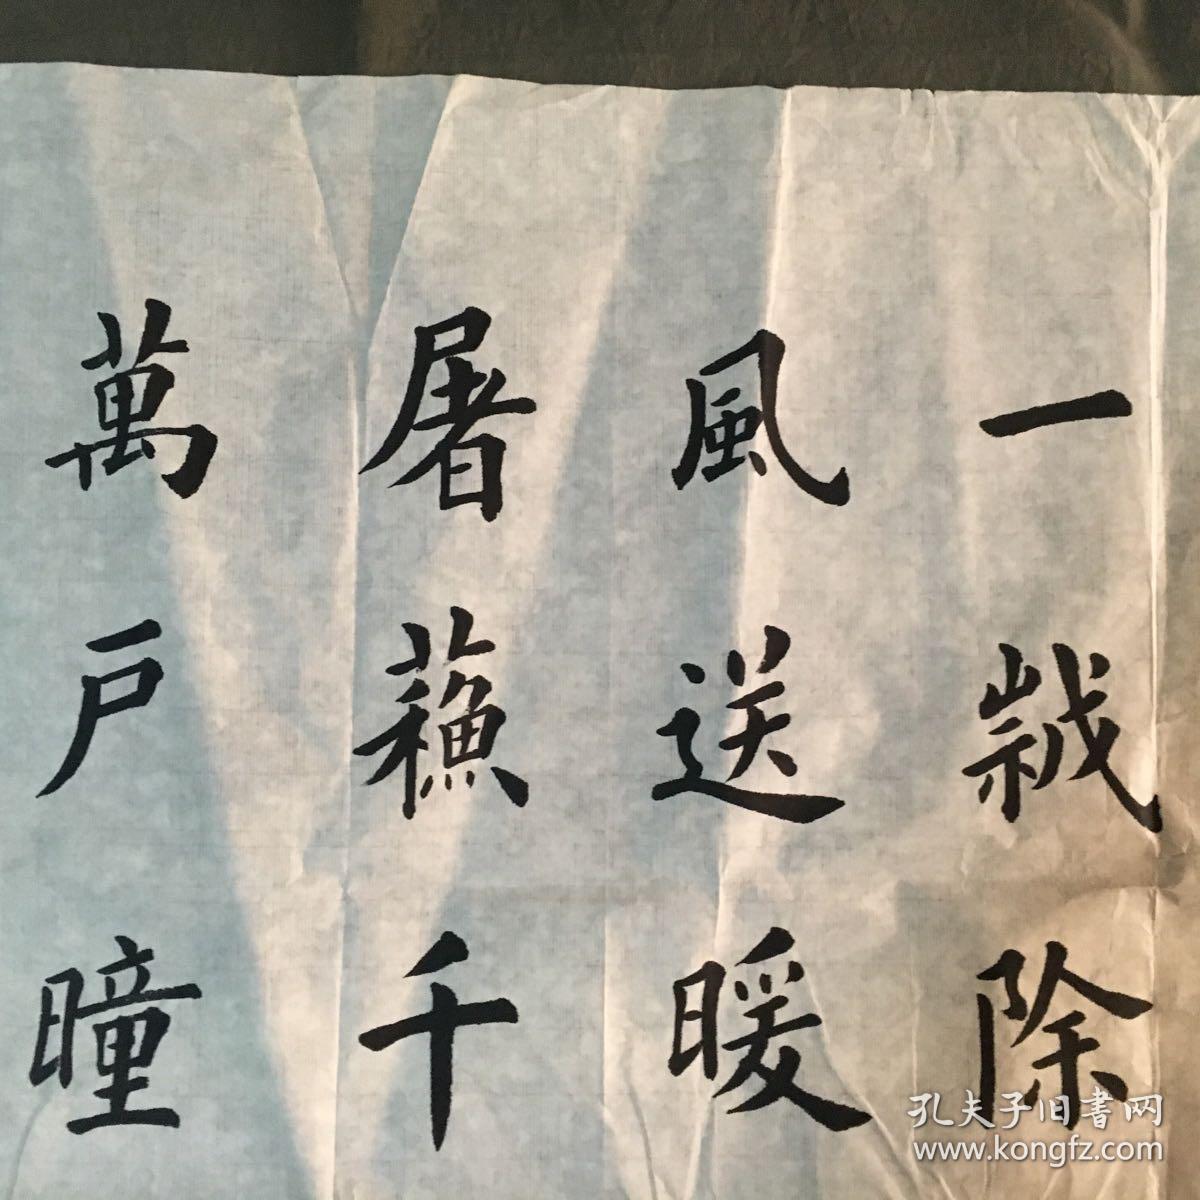 一歳除
風送暖
屠蘓千
萬戸曈
孔夫子旧書网
www.kongfz.com